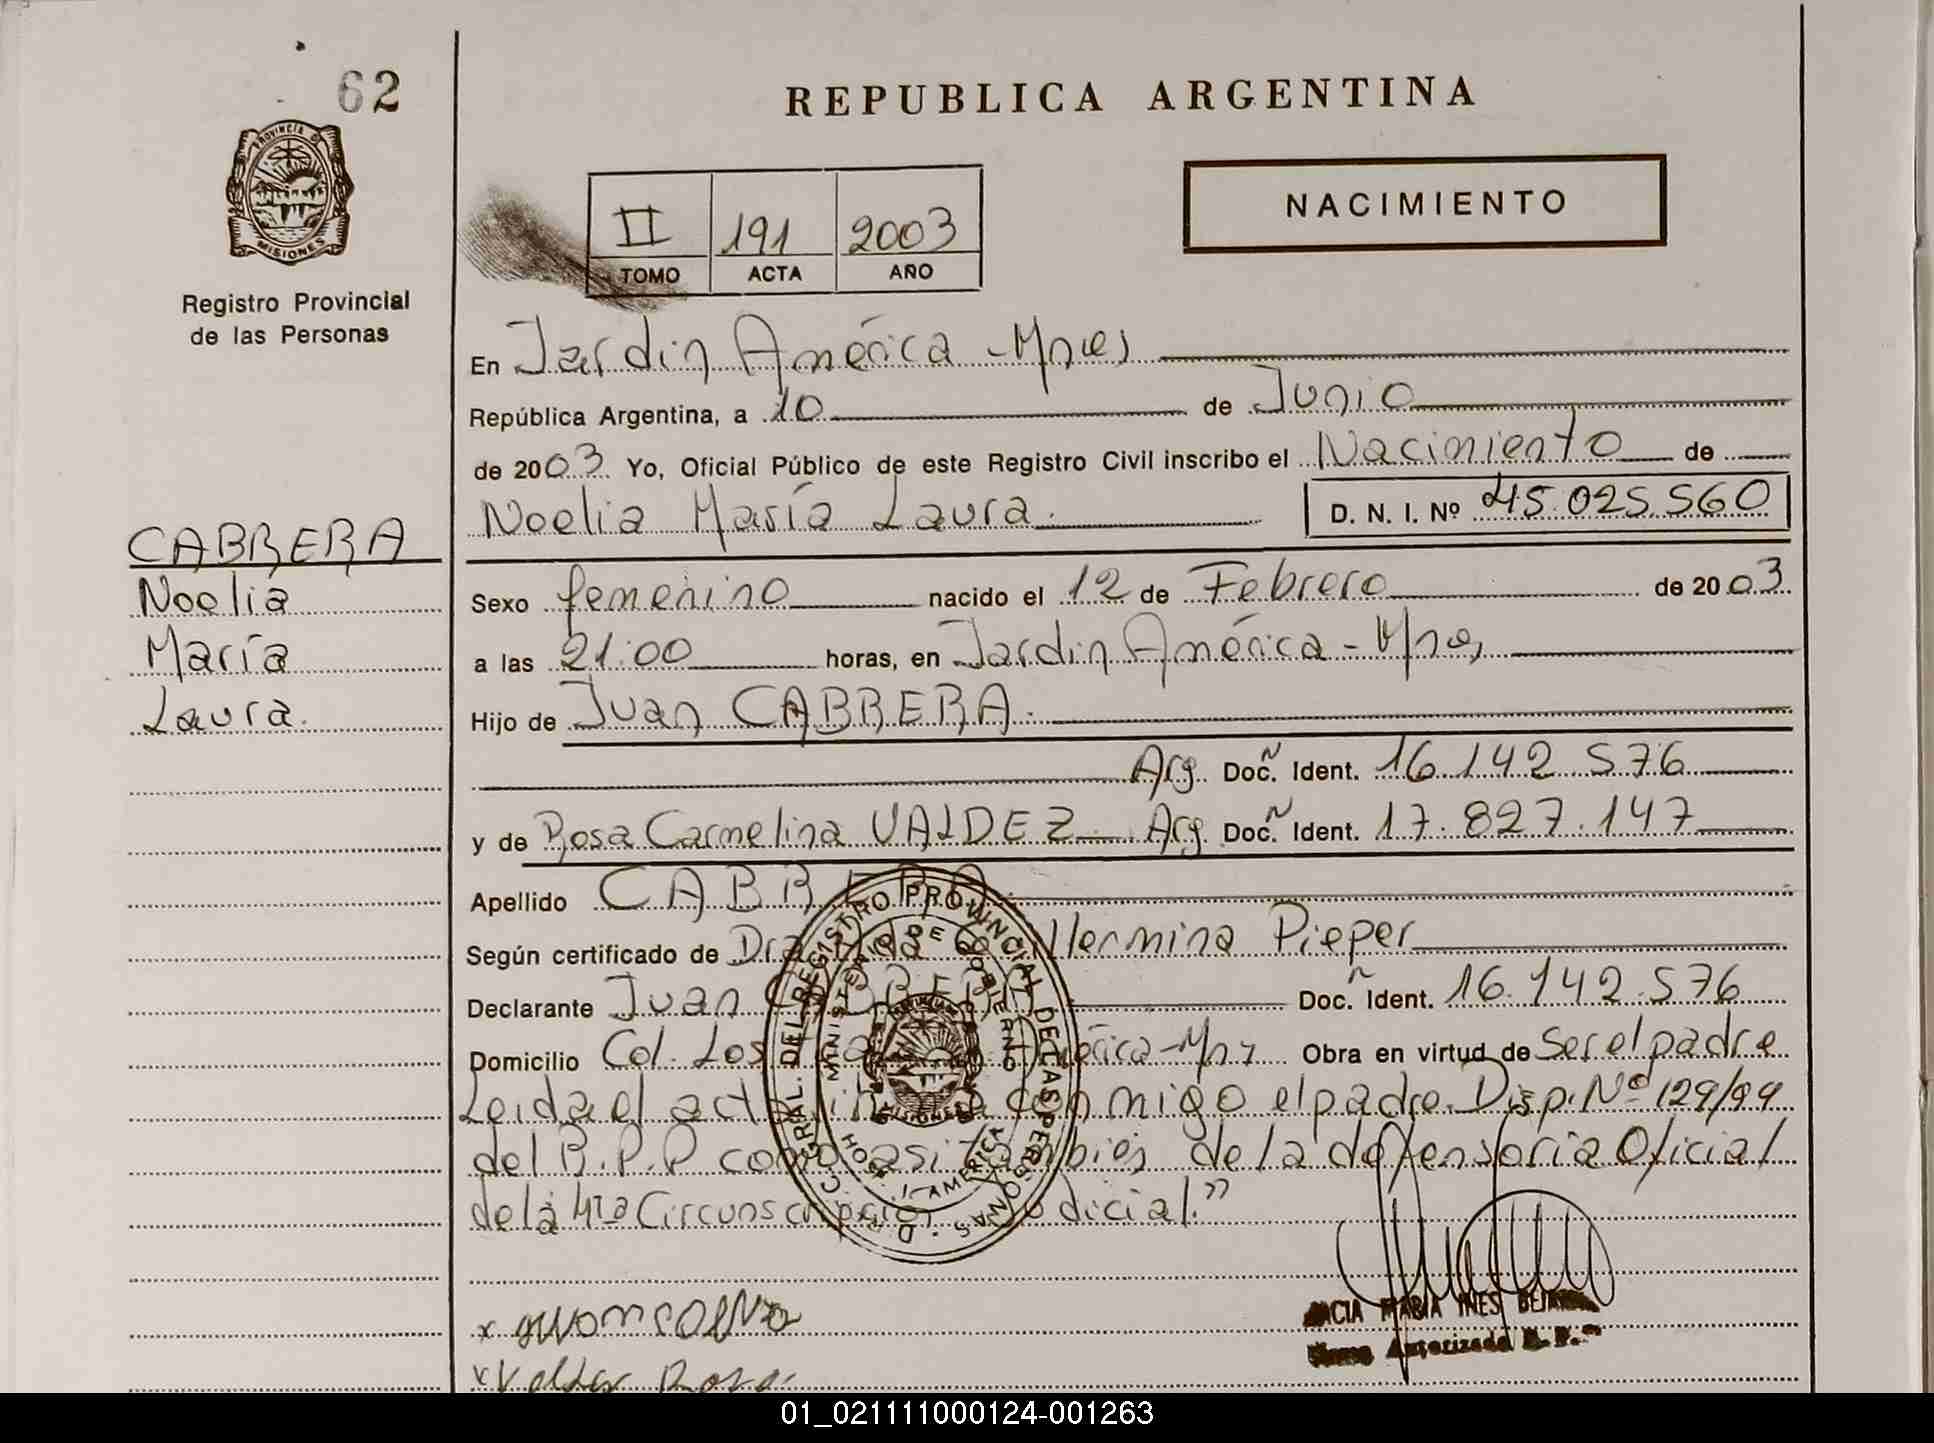 62
PROVINCIA DE
MISIONES
Registro Provincial
de las Personas
REPUBLICA ARGENTINA
NACIMIENTO
II 191 2003
TOMO ACTA AÑO
En Jardin América - Mnes
República Argentina, a 10 de Junio
de 2003 Yo, Oficial Público de este Registro Civil inscribo el Nacimiento de
Noelia María Laura. D. N. I. Nº 45.025.560
CABRERA
Noelia
María
Laura.
Sexo femenino nacido el 12 de Febrero de 2003
a las 21:00 horas, en Jardin América - Mnes
Hijo de Juan CABRERA.
Arg. Doc. Ident. 16.142.576
y de Rosa Carmelina VALDEZ Arg. Doc. Ident. 17.827.147
Apellido CABRERA
Según certificado de Dra Hermina Pieper
Declarante Juan CABRERA Doc. Ident. 16.142.576
Domicilio Col. Los América - Mnes Obra en virtud de Ser el padre
Leida el acta conmigo el padre. Disp. Nº 129/99
del R.P.P como asi tambien de la defensoria Oficial
de la 4ta Circunscripcion Judicial."
DIRECC. GRAL. DEL REGISTRO PROVINCIAL DE LAS PERSONAS
MINISTERIO DE GOBIERNO
MISIONES
AMERICA
MARIA INES
Autorizada
x Valdez Rosa
01_021111000124-001263